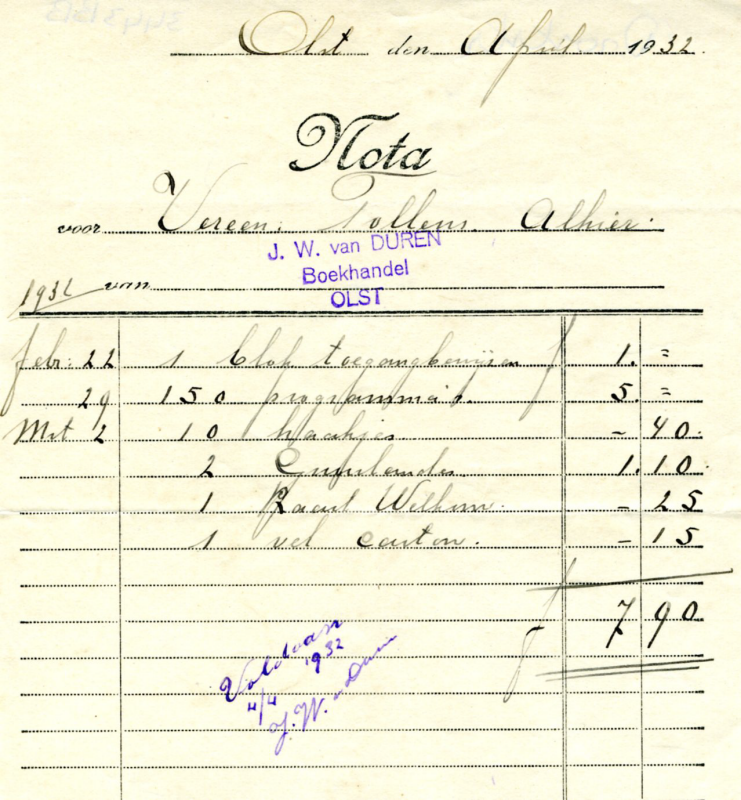 Olst den April 1932.
Nota
voor Vereen. Tollens. Alhier.
J. W. van DUREN
Boekhandel
OLST
1932 van
febr: 22 1 blok toegangbewijzen f 1. =
29 150 programma's. 5. =
Mrt 2 10 haakjes - 40.
2 Guirlandes 1. 10.
1 Willem. - 25
1 vel carton. - 15
f 7 90
Voldaan
4/4 1932
J. W. v Duren